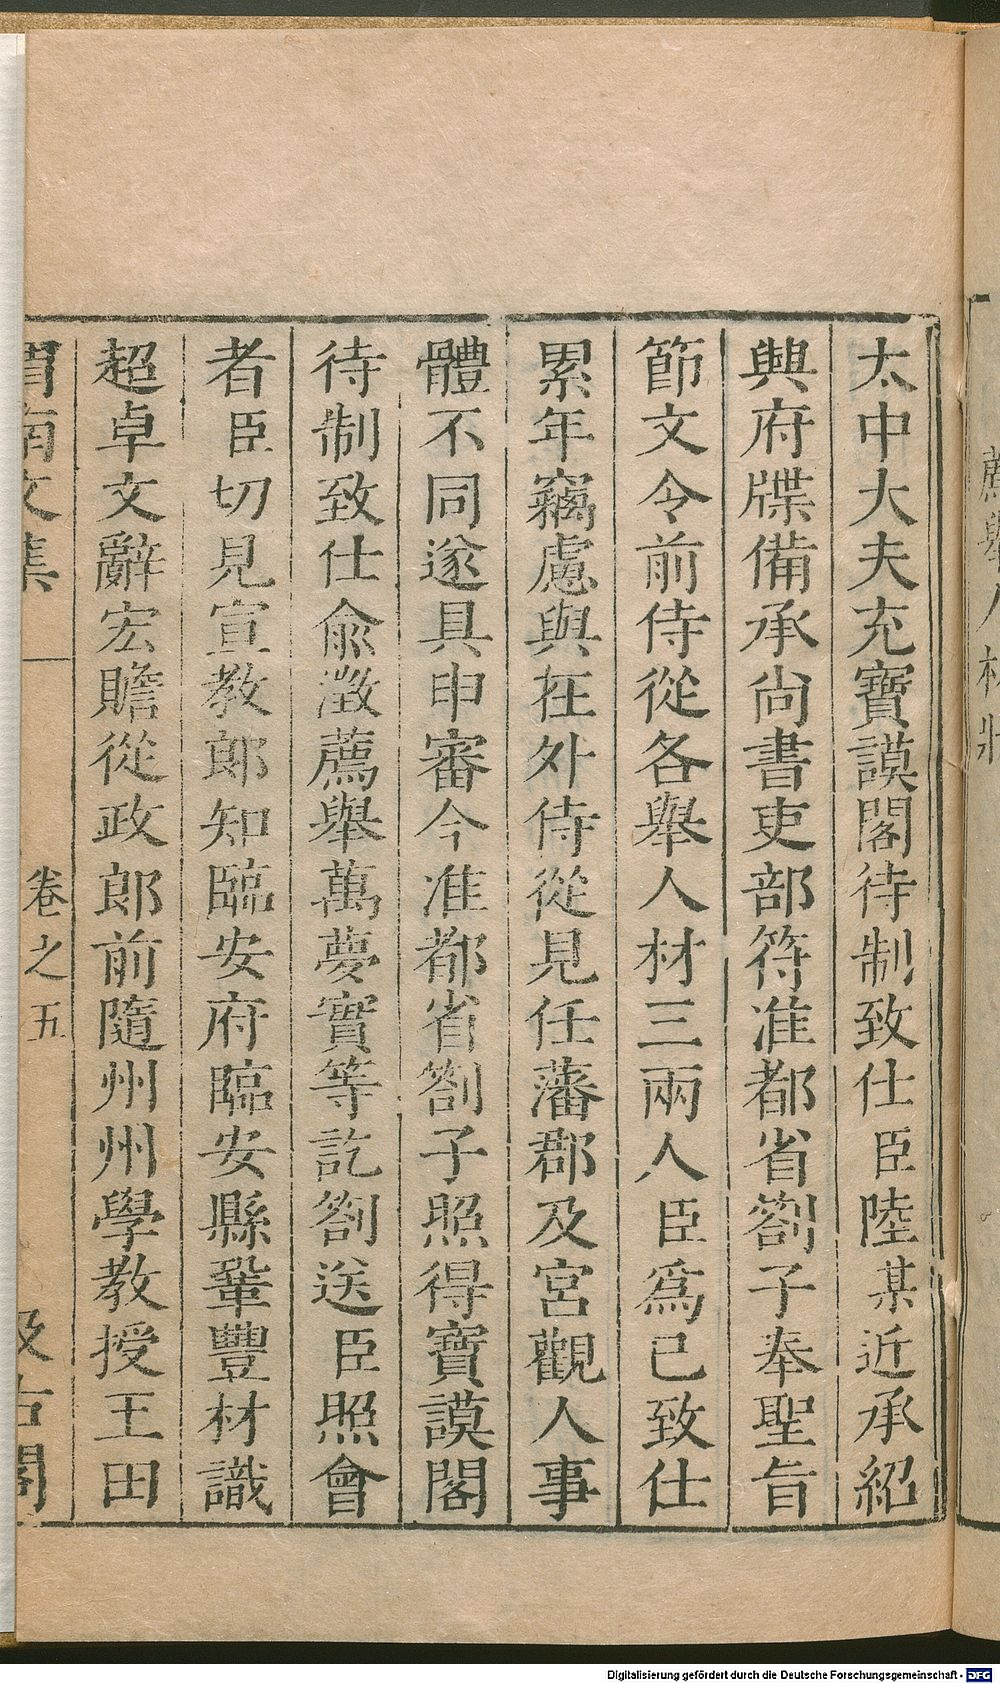 太中大夫充寶謨閣待制致仕臣陸某近承紹
興府牒備承尙書吏部符准都省劄子奉聖旨
節文令前侍從各舉人材三兩人臣爲已致仕
累年竊慮與在外侍從見任藩郡及宮觀人事
體不同遂具申審今准都省劄子照得寶謨閣
待制致仕俞澂薦舉萬夢實等訖劄送臣照會
者臣切見宣教郎知臨安府臨安縣鞏豐材識
超卓文辭宏贍從政郎前隨州州學教授王田
渭南文集
卷之五
汲古閣
Digitalisierung gefördert durch die Deutsche Forschungsgemeinschaft - DFG